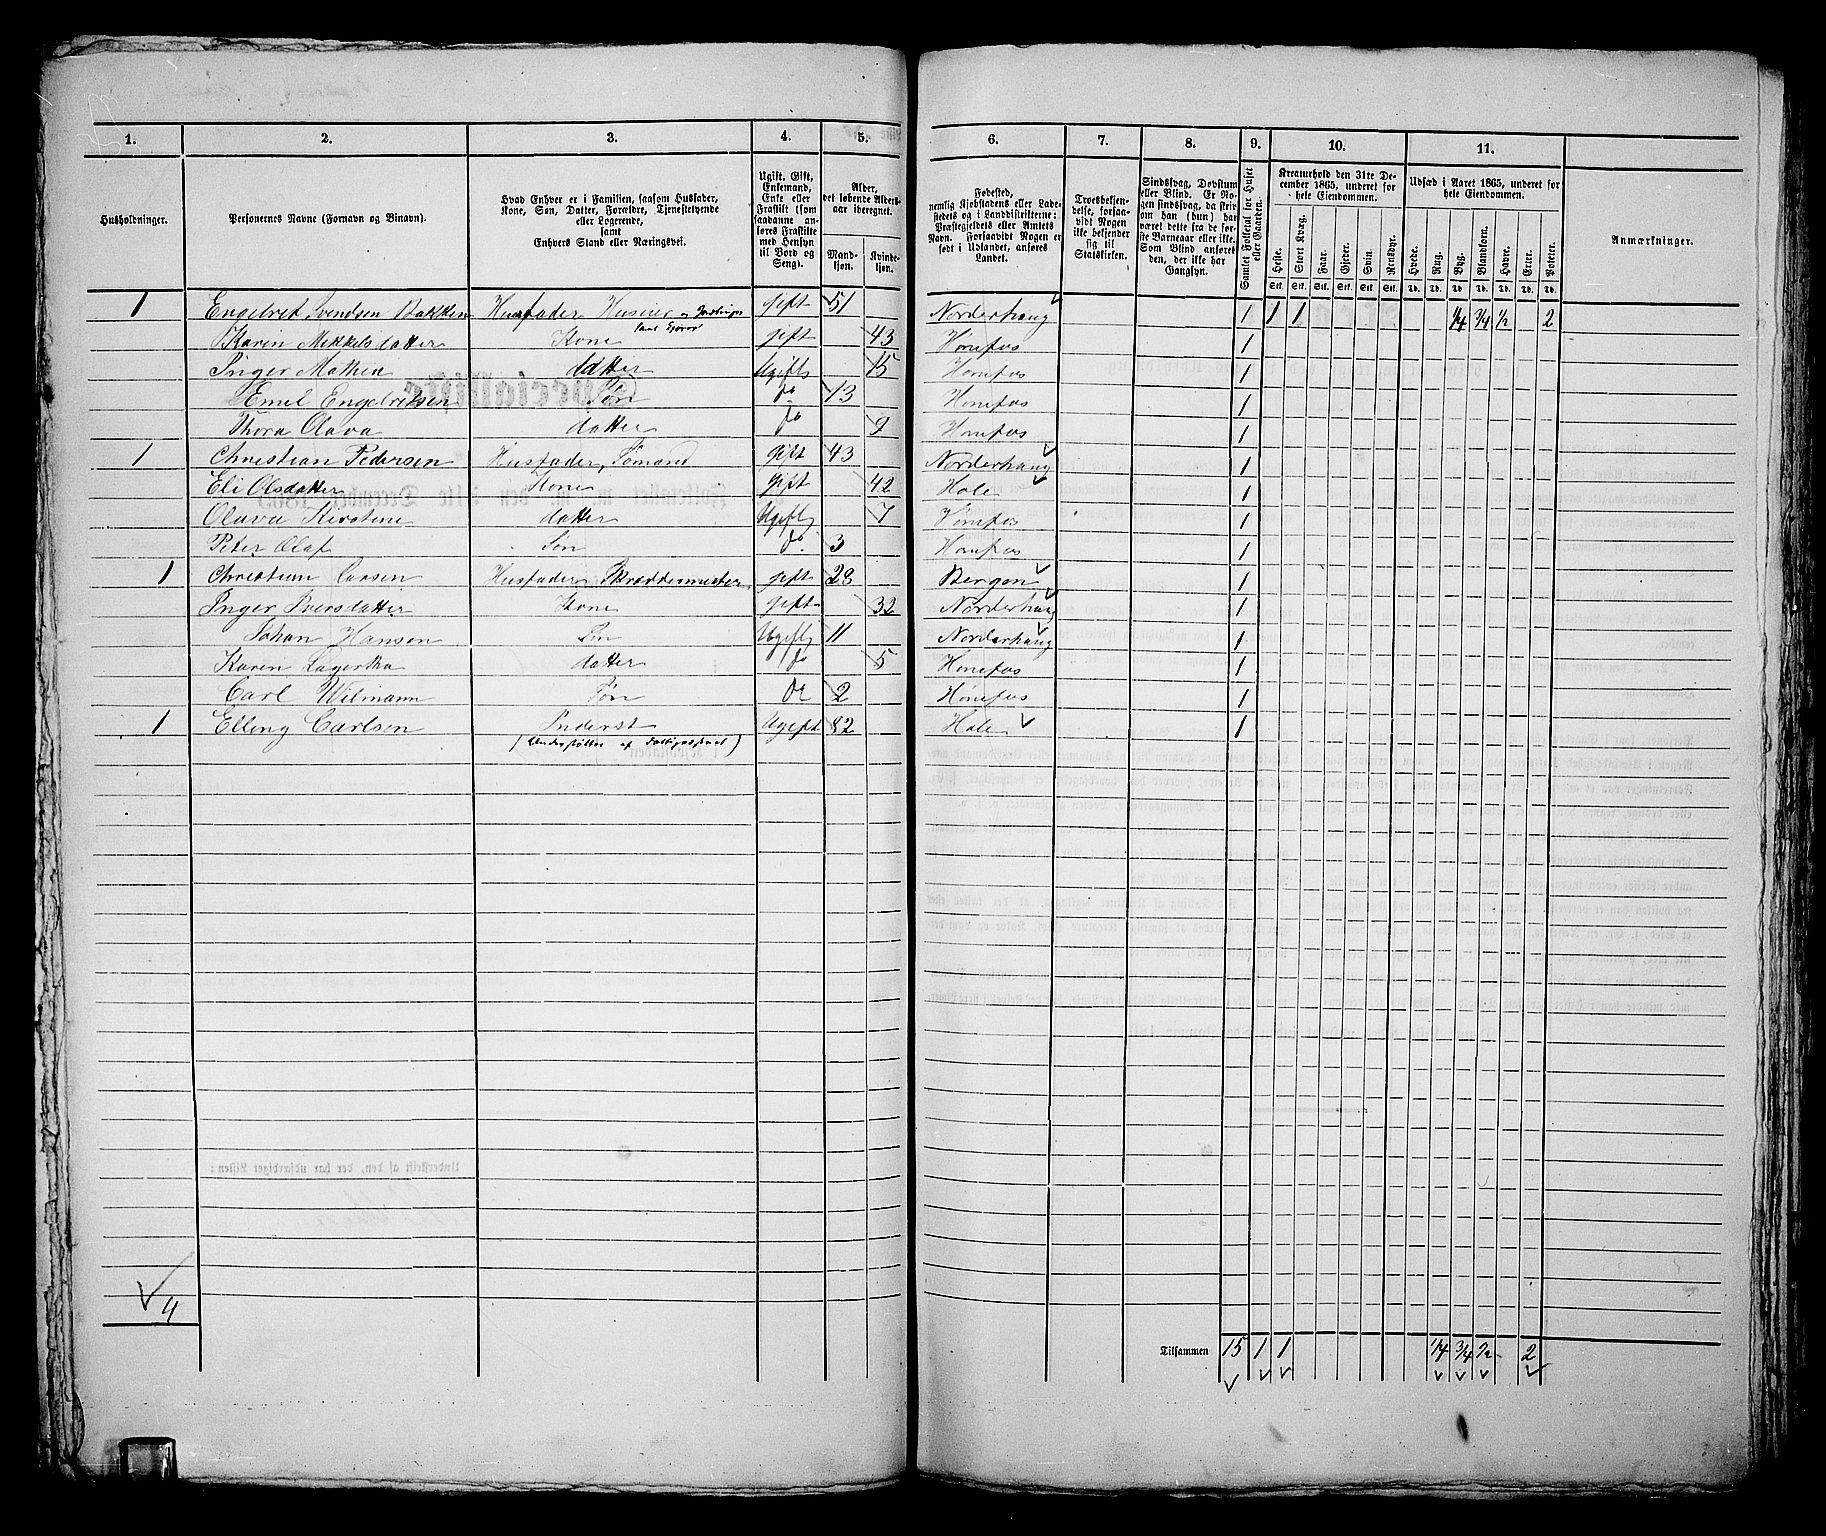 1. 2. 3. 4. 5. 6. 7. 8. 9. 10. 11.
Husholdninger.
Personernes Navne (Fornavn og Binavn).
Hvad Enhver er i Familien, saasom Husfader,
Kone, Søn, Datter, Forældre, Tjenestetyende
eller Logerende,
samt
Enhvers Stand eller Næringsvei.
Ugift, Gift,
Enkemand,
Enke eller
Fraskilt (som
saadanne an-
føres Fraskilte
med Hensyn
til Bord og
Seng).
Alder,
det løbende Alders-
aar iberegnet.
Mand-
kjøn.
Kvinde-
kjøn.
Fødested,
nemlig Kjøbstadens eller Lade-
stedets og i Landdistrikterne:
Præstegjeldets eller Amtets
Navn. Forsaavidt Nogen er
født i Udlandet, anføres
Landet.
Troesbekjen-
delse, forsaa-
vidt Nogen
ikke bekjender
sig til
Statskirken.
Sindssvag, Døvstum
eller Blind. Er No-
gen sindssvag, da skriv
om han (hun) har
været dette fra de før-
ste Barneaar eller ikke.
Som Blind ansøres
den, der ikke har
Gangsyn.
Samlet Folketal for Huset
eller Gaarden.
Kreaturhold den 31te De-
cember 1865, underet for
hele Eiendommen.
Heste. Stort Kvæg. Faar. Gjeder. Svin. Rensdyr.
Stk. Stk. Stk. Stk. Stk. Stk.
Udsæd i Aaret 1865, underet for
hele Eiendommen.
Hvede. Rug. Byg. Blandkorn. Havre. Erter. Poteter.
Td. Td. Td. Td. Td. Td. Td.
Anmærkninger.
1 Engebret Svendsen Bakken Husfader Huseier gift 51 Norderhaug 1 1 1 1/4 3/4 1/2 2
Karen Mikkelsdatter Kone gift 43 Hønefos 1
Inger Mathea datter Ugift 15 Hønefos 1
Emil Engebritsen Søn do 13 Hønefos 1
Thora Olava datter do 9 Hønefos 1
1 Christian Pedersen Husfader, Tømand gift 43 Norderhaug 1
Eli Olsdatter Kone gift 42 Hole 1
Olava Kirstine datter Ugift 7 Hønefos 1
Peter Olaf Søn do 3 Hønefos 1
1 Christian Larsen Husfader Skræddermester gift 28 Bergen 1
Inger Iversdatter Kone gift 32 Norderhaug 1
Johan Hansen Søn Ugift 11 Norderhaug 1
Karen Lagertha datter do 5 Hønefos 1
Carl Wilmann Søn do 2 Hønefos 1
1 Elling Carlsen Inderst Ugift 82 Hole 1
(Understøttes af Fattigvæsenet)
4
Tilsammen 15 1 1 1/4 3/4 1/2 2